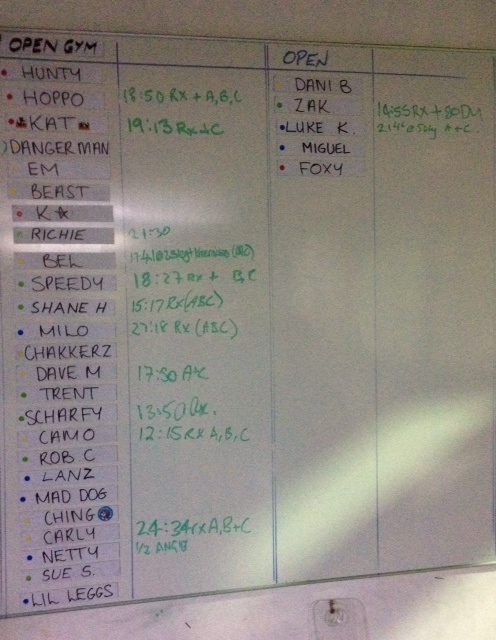 OPEN GYM
HUNTY
HOPPO 18:50 RX + A,B,C
KAT 19:13 RX + C
DANGERMAN
EM
BEAST
K
RICHIE 21:30
BEL
SPEEDY 18:27 RX + B,C
SHANE H 15:17 RX (ABC)
MILO 27:18 RX (ABC)
CHAKKERZ
DAVE M 17:50
TRENT
SCHARFY 13:50 RX.
CAMO 12:15 RX A,B,C
ROB C
LANZ
MAD DOG
CHING
CARLY 24:34 rx A,B+C
NETTY 1/2
SUE S.
LIL LEGGS
OPEN
DANI B
ZAK 14:55 RX +
LUKE K. A + C.
MIGUEL
FOXY